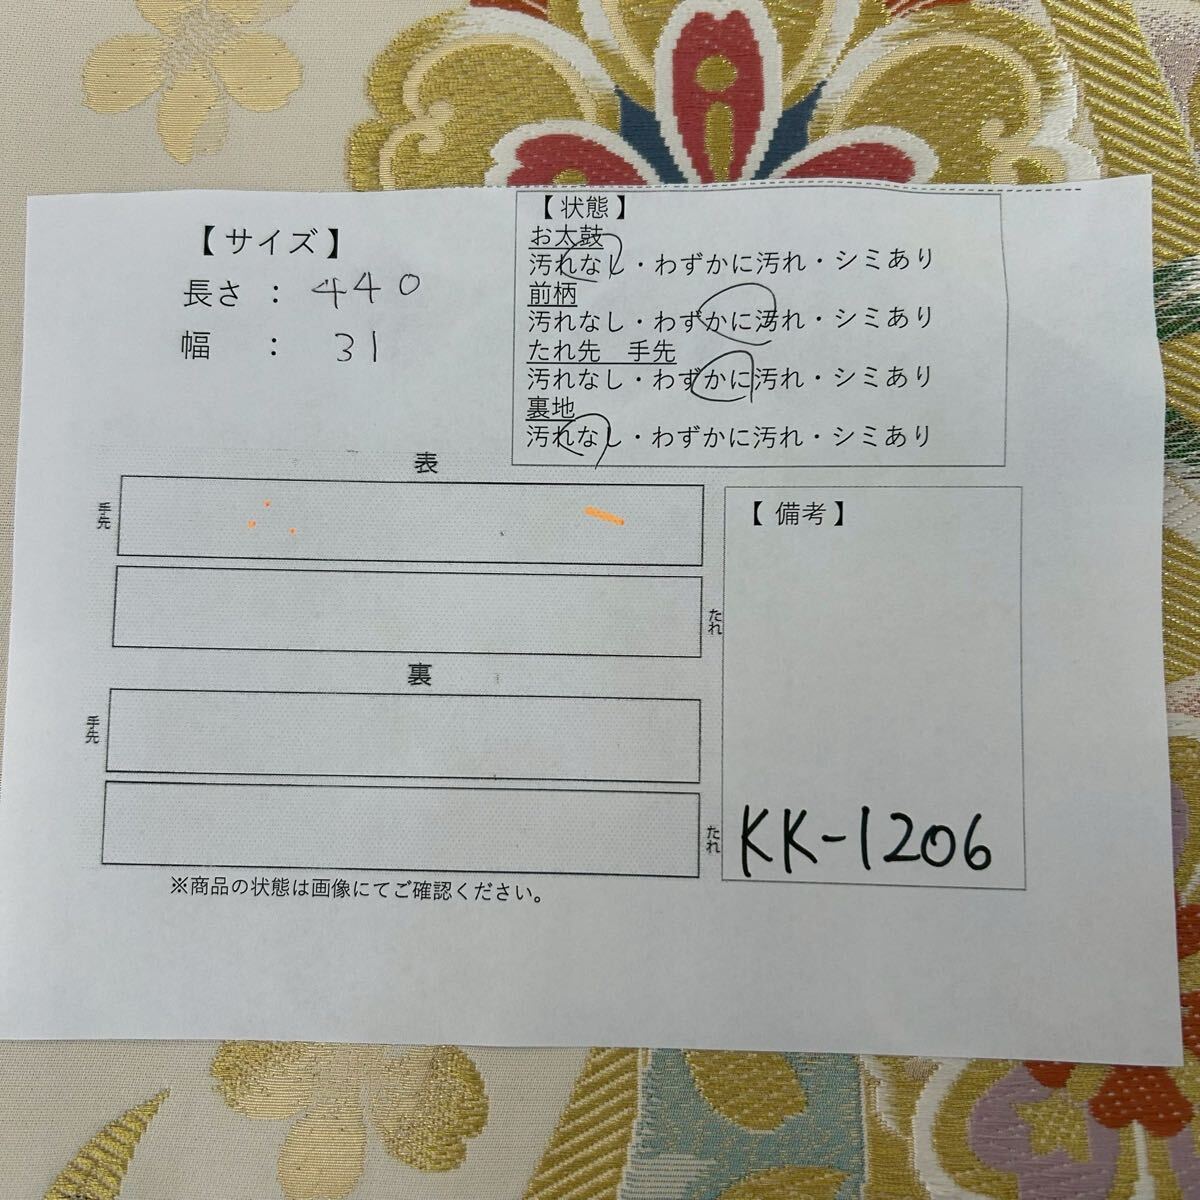 【サイズ】
長さ : 440
幅 : 31
【状態】
お太鼓
汚れなし・わずかに汚れ・シミあり
前柄
汚れなし・わずかに汚れ・シミあり
たれ先 手先
汚れなし・わずかに汚れ・シミあり
裏地
汚れなし・わずかに汚れ・シミあり
表
手先
たれ
裏
手先
たれ
※商品の状態は画像にてご確認ください。
【備考】
KK-1206